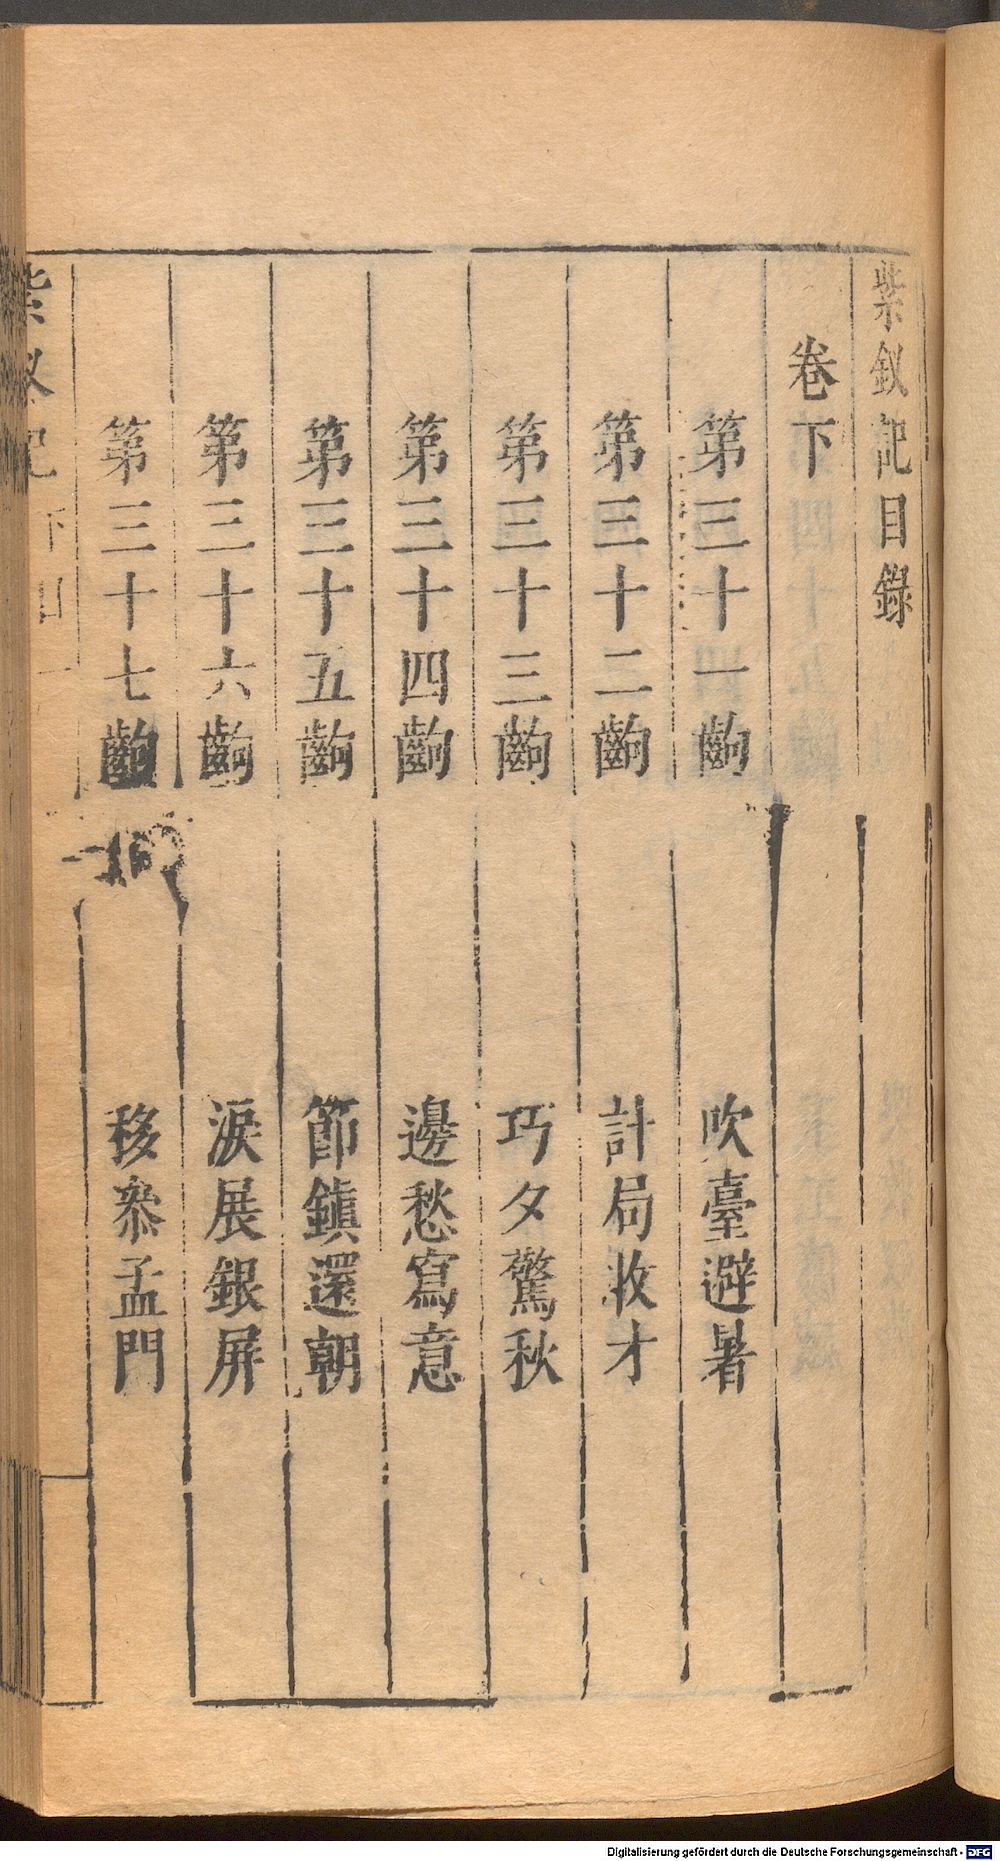 紫釵記目錄
卷下
第三十一齣 吹臺避暑
第三十二齣 計局收才
第三十三齣 巧夕驚秋
第三十四齣 邊愁寫意
第三十五齣 節鎮還朝
第三十六齣 淚展銀屏
第三十七齣 移參孟門
紫釵記 下目 一
Digitalisierung gefördert durch die Deutsche Forschungsgemeinschaft - DFG